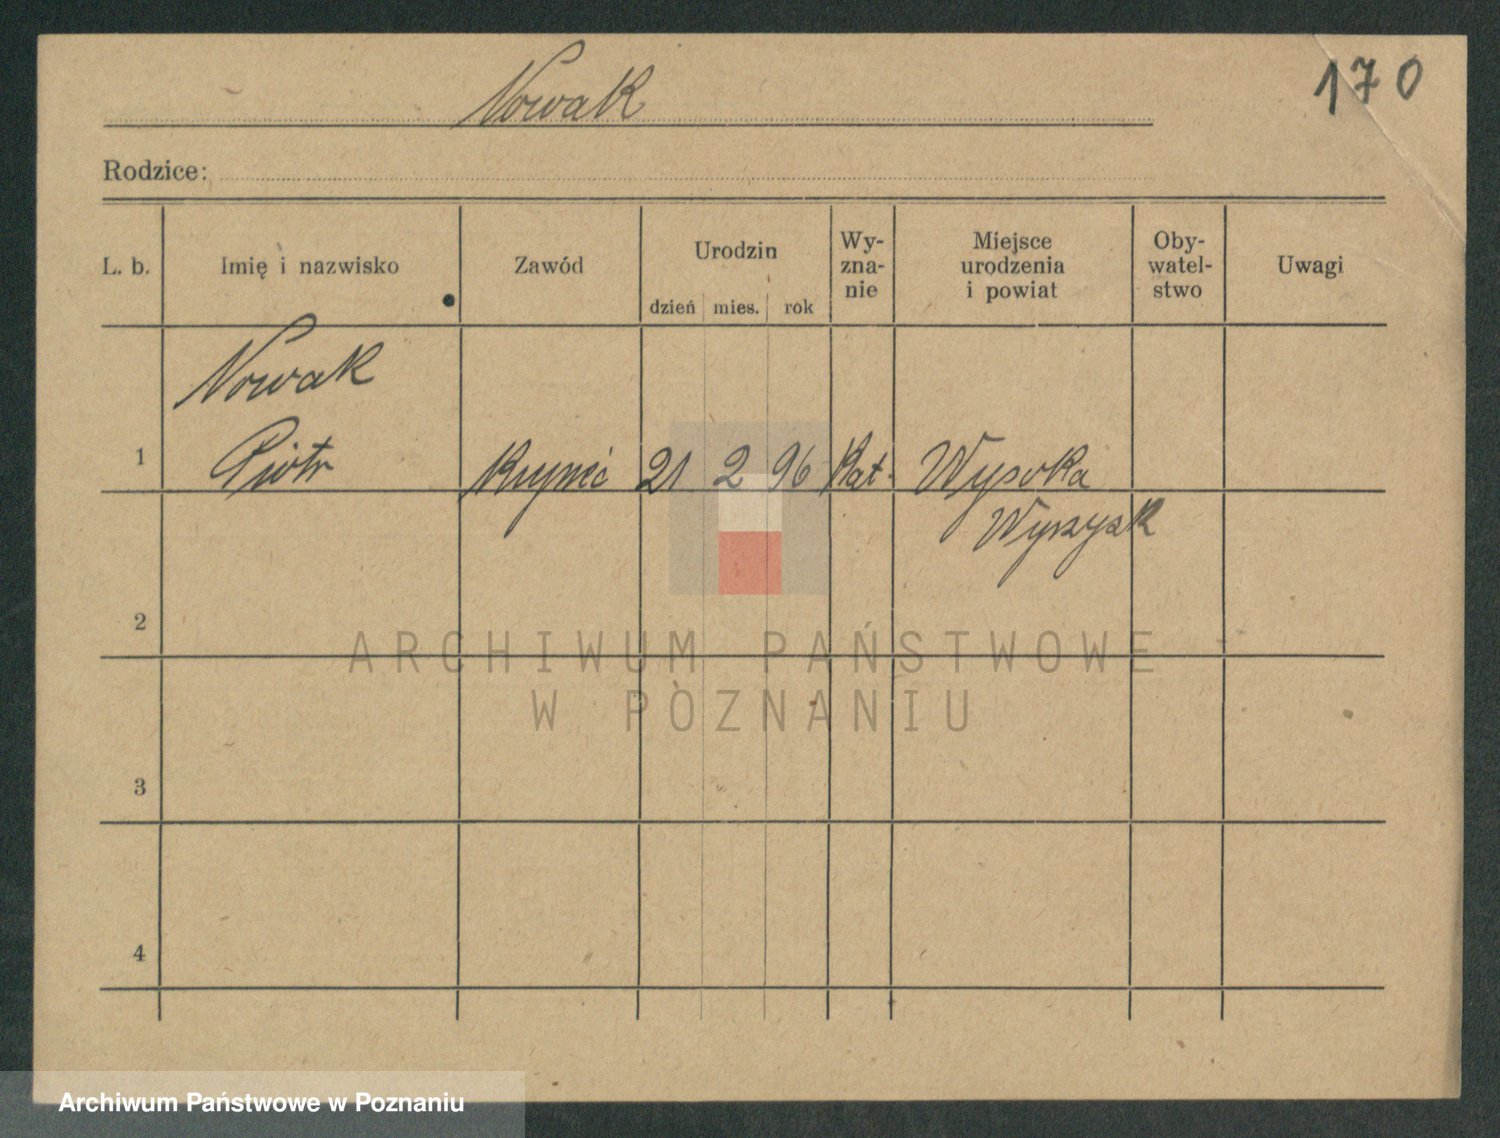 170
Nowak
Rodzice:
L. b.
Imię i nazwisko
Zawód
Urodzin
dzień mies. rok
Wy-
zna-
nie
Miejsce
urodzenia
i powiat
Oby-
watel-
stwo
Uwagi
Nowak
1 Piotr 21 2 96 Kat. Wysoka
Wyrzysk
2
ARCHIWUM PAŃSTWOWE
W POZNANIU
3
4
Archiwum Państwowe w Poznaniu